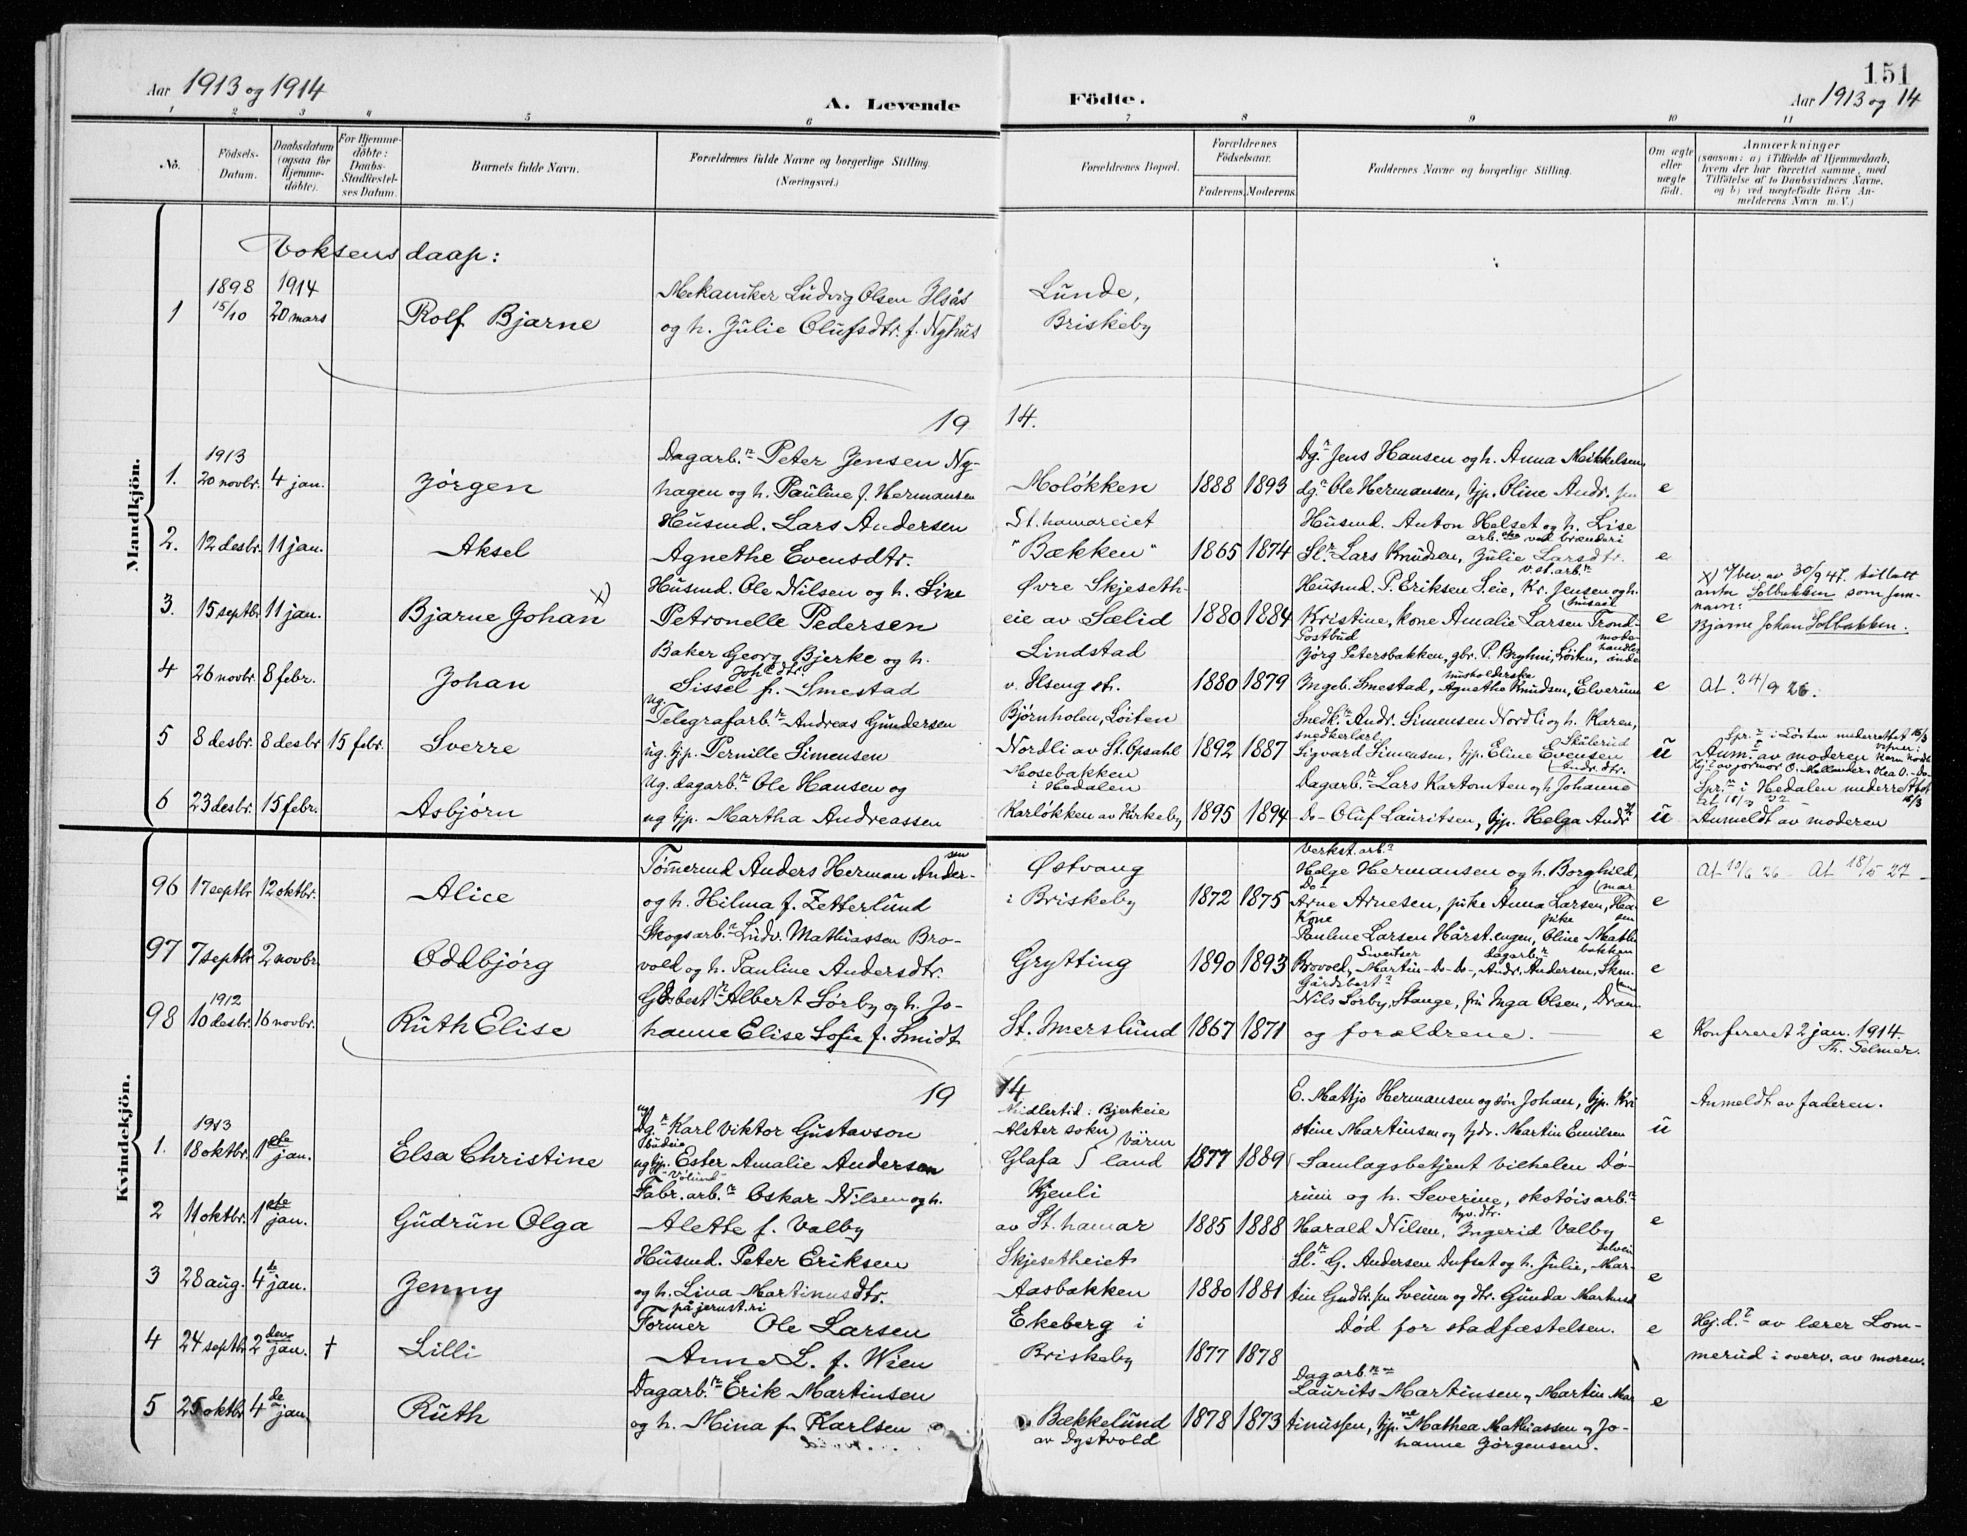 Aar 1913 og 1914
A. Levende
Födte.
151
Aar 1913 og 14
1 2 3 4 5 6 7 8 9 10 11
No.
Födsels-Datum.
Daabsdatum (ogsaa for Hjemme-döbte).
For Hjemme-döbte: Daabs-Stadfæstel-ses Datum.
Barnets fulde Navn.
Forældrenes fulde Navne og borgerlige Stilling. (Næringsvei.)
Forældrenes Bopæl.
Forældrenes Födselsaar.
Faderens. Moderens.
Faddernes Navne og borgerlige Stilling.
Om ægte eller uægte födt.
Anmærkninger
(saasom: a) i Tilfælde af Hjemmedaab,
hvem der har forrettet samme, med
Tilföielse af to Daabsvidners Navne,
og b) ved uægtefödte Börn An-
melderens Navn m. V.)
Mandkjön.
Voksensdaap:
1898 1914 Mekaniker Ludvig Olsen Ilsås Lunde,
1 15/10 20 mars Rolf Bjarne og h. Julie Olufsdtr. f. Nyhus Briskeby
19 14.
1913 Dagarb.r Peter Jensen Ny- Dg.r Jens Hansen og h. Anna Mikkelsen,
1. 20 novbr. 4 jan. Jørgen hagen og h. Pauline f. Hermansen Moløkken 1888 1893 dg.r Ole Hermansen, tjp. Oline Andr. sen e
Husmd. Lars Andersen St. hamareiet Husmd. Anton Helset og h. Lise
2. 12 desbr. 11 jan. Aksel Agnethe Evensdtr. "Bækken" 1865 1874 Sl.r Lars Knudsen, Julie Larsdtr. e
arb.ske ved brænderi
Husmd. Ole Nilsen og h. Line Øvre Skjeseth- Husmd. P. Eriksen S.eie, Kr. Jensen og h.
3. 15 septbr 11 jan. Bjarne Johan x) Petronelle Pedersen eie av Sælid 1880 1884 Kristine, kone Amalie Larsen Trond- e
x) bev. av 30/9 47. tillatt
anta Solbakken som fam-
navn:
Bjarne Johan Solbakken.
Baker Georg Bjerke og h. Lindstad Jørg Petersbakken, gbr. P. Bryhni, Löiten,
4 26 novbr. 8 febr. Johan Sissel Joh.dtr. f. Smestad v. Ilseng st. 1880 1879 Ingeb. Smestad, Agnethe Knudsen, Elverum e At. 24/9 26.
Ug. Telegrafarb.r Andreas Gundersen Bjørnholen, Löiten Snedk.r Andr. Simensen Nordli og h. Karen,
5 8 desbr. 8 desbr 15 febr. Sverre ug. tjp. Pernille Simensen Nordli av St. Opsahl 1892 1887 Sigvard Simensen, tjp. Eline Evensen u Anm. av moderen
snedkerlærl. Skulerud
Ug. dagarb.r Ole Hansen og Mosebakken i Hedalen Dagarb.r Lars Kartomten og h Johanne
6 23 desbr. 15 febr. Asbjørn ug tjp. Martha Andreassen Karløkken av Kirkeby 1895 1894 Do- Oluf Lauritsen, tjp. Helga Andr. u Anmeldt av moderen
Kvindekjön.
Tømmermd Anders Herman Ander-sen Østvang Helge Hermansen og h. Borghild,
96 17 septbr 12 oktbr. Alice og h. Hilma f. Zetterlund i Briskeby 1872 1875 Arne Arnesen, pike Anna Larsen, e
At 10/6 26 - At 18/5 27 -
Skogsarb.r Ludv. Mathiassen Bro- Pauline Larsen Hårst.engen, Oline Math
97 7 septbr 2 novbr. Oddbjørg vold og h. Pauline Andersdtr. Grytting 1890 1893 Brovold, Martin -Do-Do-, Andr. Andersen, e
1912 Gdbest.r Albert Sørby og h. Jo- Nils Sørby, Stange, frk Inga Olsen, Dram
98 10 desbr. 16 novbr. Ruth Elise hanne Elise Sofie f. Smidt St. Imerslund 1867 1871 og forældrene. e Konfereret 2 jan. 1914.
Th. Selmer.
19 14
1913 ug Dg.r Karl Viktor Gustavson Midlertid: Bjerkeie E. Mattjo Hermansen og søn Johan, tjp. Kri Anmeldt av faderen.
Alster sokn stine Martinsen og tjdr. Martin Emilsen u
1. 18 oktbr. 1ste jan. Elsa Christine ug tjp. Ester Amalie Andersen Glafa } Värmland 1877 1889 Samlagsbetjent Vilhelm Dø-
Fabr. arb.r Oskar Nilsen og h. Kjenli rum og h. Severine, skotöisarb.r
2 11 oktbr. 1ste jan. Gudrun Olga Alette f. Valby av St. hamar 1885 1888 Harald Nilsen, Ingerid Valby e
Husmd. Peter Eriksen Skjesetheiet Sl.r G. Andersen Dufset og h. Julie, Mar-
3 28 aug. 4de jan. Jenny og h. Lina Martinusdtr. Aasbakken 1880 1881 tin Gudbr.sen Sveum og dtr. Gunda e
på jernst.ri
Former Ole Larsen Ekeberg i Død for stadfæstelsen. e Hj.d.t av lærer Lom-
4 24 septbr 2den jan. † Lilli Anne L. f. Wien Briskeby 1877 1878 merud i overv. av moren.
Dagarb.r Erik Martinsen Dagarb.rne Laurits Martinsen og Martin Mar
5 25 oktbr 4de jan. Ruth og h. Mina f. Karlsen Bækkelund 1878 1873 tinussen, tjp.ne Mathea Mathiassen og Jo- e
av Dystvold hanne Jørgensen.